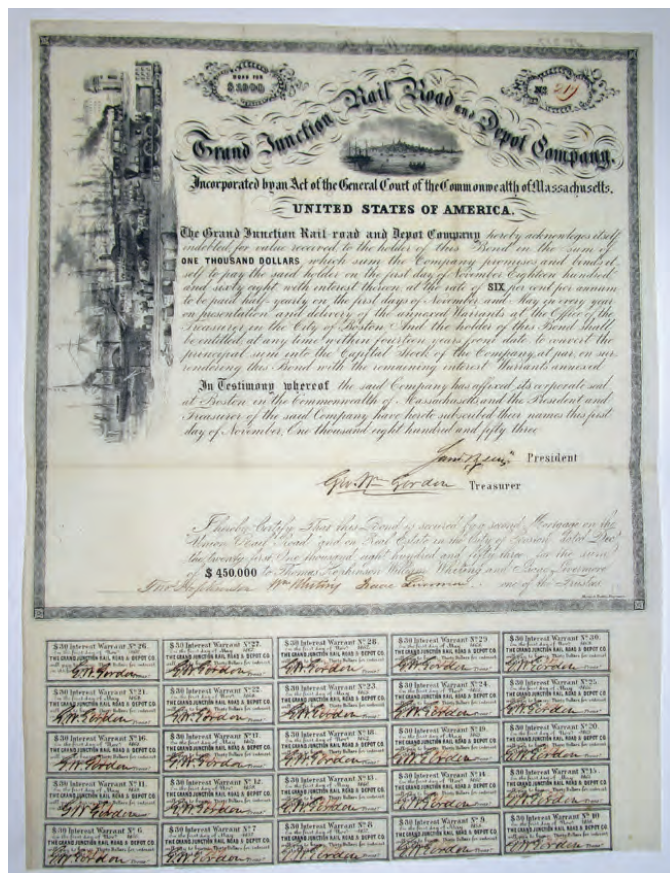 BOND FOR
$1000
No 219
Grand Junction Rail Road and Depot Company.
Incorporated by an Act of the General Court of the Commonwealth of Massachusetts,
UNITED STATES OF AMERICA.
The Grand Junction Rail road and Depot Company hereby acknowleges itself
indebted for value received to the holder of this Bond in the sum of
ONE THOUSAND DOLLARS which sum the Company promises and binds it
self to pay the said holder on the first day of November Eighteen hundred
and sixty eight with interest thereon at the rate of SIX per cent per annum
to be paid half-yearly on the first days of November and May in every year
on presentation and delivery of the annexed Warrants at the Office of the
Treasurer in the City of Boston And the holder of this Bond shall
be entitled, at any time within fourteen years from date to convert the
principal sum into the Capital Stock of the Company, at par, on sur
rendering this Bond with the remaining interest Warrants annexed.
In Testimony whereof the said Company has affixed its corporate seal
at Boston in the Commonwealth of Massachusetts, and the President and
Treasurer of the said Company have hereto subscribed their names this first
day of November, One thousand eight hundred and fifty three
President
Geo. Wm Gordon Treasurer
I hereby Certify That this Bond is secured by a second Mortgage on the
Road and on Real Estate in the City of Boston dated Decr
the twenty first, One thousand eight hundred and fifty three for the sum
of $450,000 to Thomas Hopkinson William Whiting and Isaac Livermore
Thos Hopkinson Wm Whiting Isaac Livermore one of the Trustees
$30 Interest Warrant No 26.
THE GRAND JUNCTION RAIL ROAD & DEPOT CO.
G.W. Gordon
$30 Interest Warrant No 27.
THE GRAND JUNCTION RAIL ROAD & DEPOT CO.
G.W. Gordon
$30 Interest Warrant No 28.
THE GRAND JUNCTION RAIL ROAD & DEPOT CO.
G.W. Gordon
$30 Interest Warrant No 29.
THE GRAND JUNCTION RAIL ROAD & DEPOT CO.
G.W. Gordon
$30 Interest Warrant No 30.
THE GRAND JUNCTION RAIL ROAD & DEPOT CO.
G.W. Gordon
$30 Interest Warrant No 21.
THE GRAND JUNCTION RAIL ROAD & DEPOT CO.
G.W. Gordon
$30 Interest Warrant No 22.
THE GRAND JUNCTION RAIL ROAD & DEPOT CO.
G.W. Gordon
$30 Interest Warrant No 23.
THE GRAND JUNCTION RAIL ROAD & DEPOT CO.
G.W. Gordon
$30 Interest Warrant No 24.
THE GRAND JUNCTION RAIL ROAD & DEPOT CO.
G.W. Gordon
$30 Interest Warrant No 25.
THE GRAND JUNCTION RAIL ROAD & DEPOT CO.
G.W. Gordon
$30 Interest Warrant No 16.
THE GRAND JUNCTION RAIL ROAD & DEPOT CO.
G.W. Gordon
$30 Interest Warrant No 17.
THE GRAND JUNCTION RAIL ROAD & DEPOT CO.
G.W. Gordon
$30 Interest Warrant No 18.
THE GRAND JUNCTION RAIL ROAD & DEPOT CO.
G.W. Gordon
$30 Interest Warrant No 19.
THE GRAND JUNCTION RAIL ROAD & DEPOT CO.
G.W. Gordon
$30 Interest Warrant No 20.
THE GRAND JUNCTION RAIL ROAD & DEPOT CO.
G.W. Gordon
$30 Interest Warrant No 11.
THE GRAND JUNCTION RAIL ROAD & DEPOT CO.
G.W. Gordon
$30 Interest Warrant No 12.
THE GRAND JUNCTION RAIL ROAD & DEPOT CO.
G.W. Gordon
$30 Interest Warrant No 13.
THE GRAND JUNCTION RAIL ROAD & DEPOT CO.
G.W. Gordon
$30 Interest Warrant No 14.
THE GRAND JUNCTION RAIL ROAD & DEPOT CO.
G.W. Gordon
$30 Interest Warrant No 15.
THE GRAND JUNCTION RAIL ROAD & DEPOT CO.
G.W. Gordon
$30 Interest Warrant No 6.
THE GRAND JUNCTION RAIL ROAD & DEPOT CO.
G.W. Gordon
$30 Interest Warrant No 7
THE GRAND JUNCTION RAIL ROAD & DEPOT CO.
G.W. Gordon
$30 Interest Warrant No 8
THE GRAND JUNCTION RAIL ROAD & DEPOT CO.
G.W. Gordon
$30 Interest Warrant No 9.
THE GRAND JUNCTION RAIL ROAD & DEPOT CO.
G.W. Gordon
$30 Interest Warrant No 10
THE GRAND JUNCTION RAIL ROAD & DEPOT CO.
G.W. Gordon